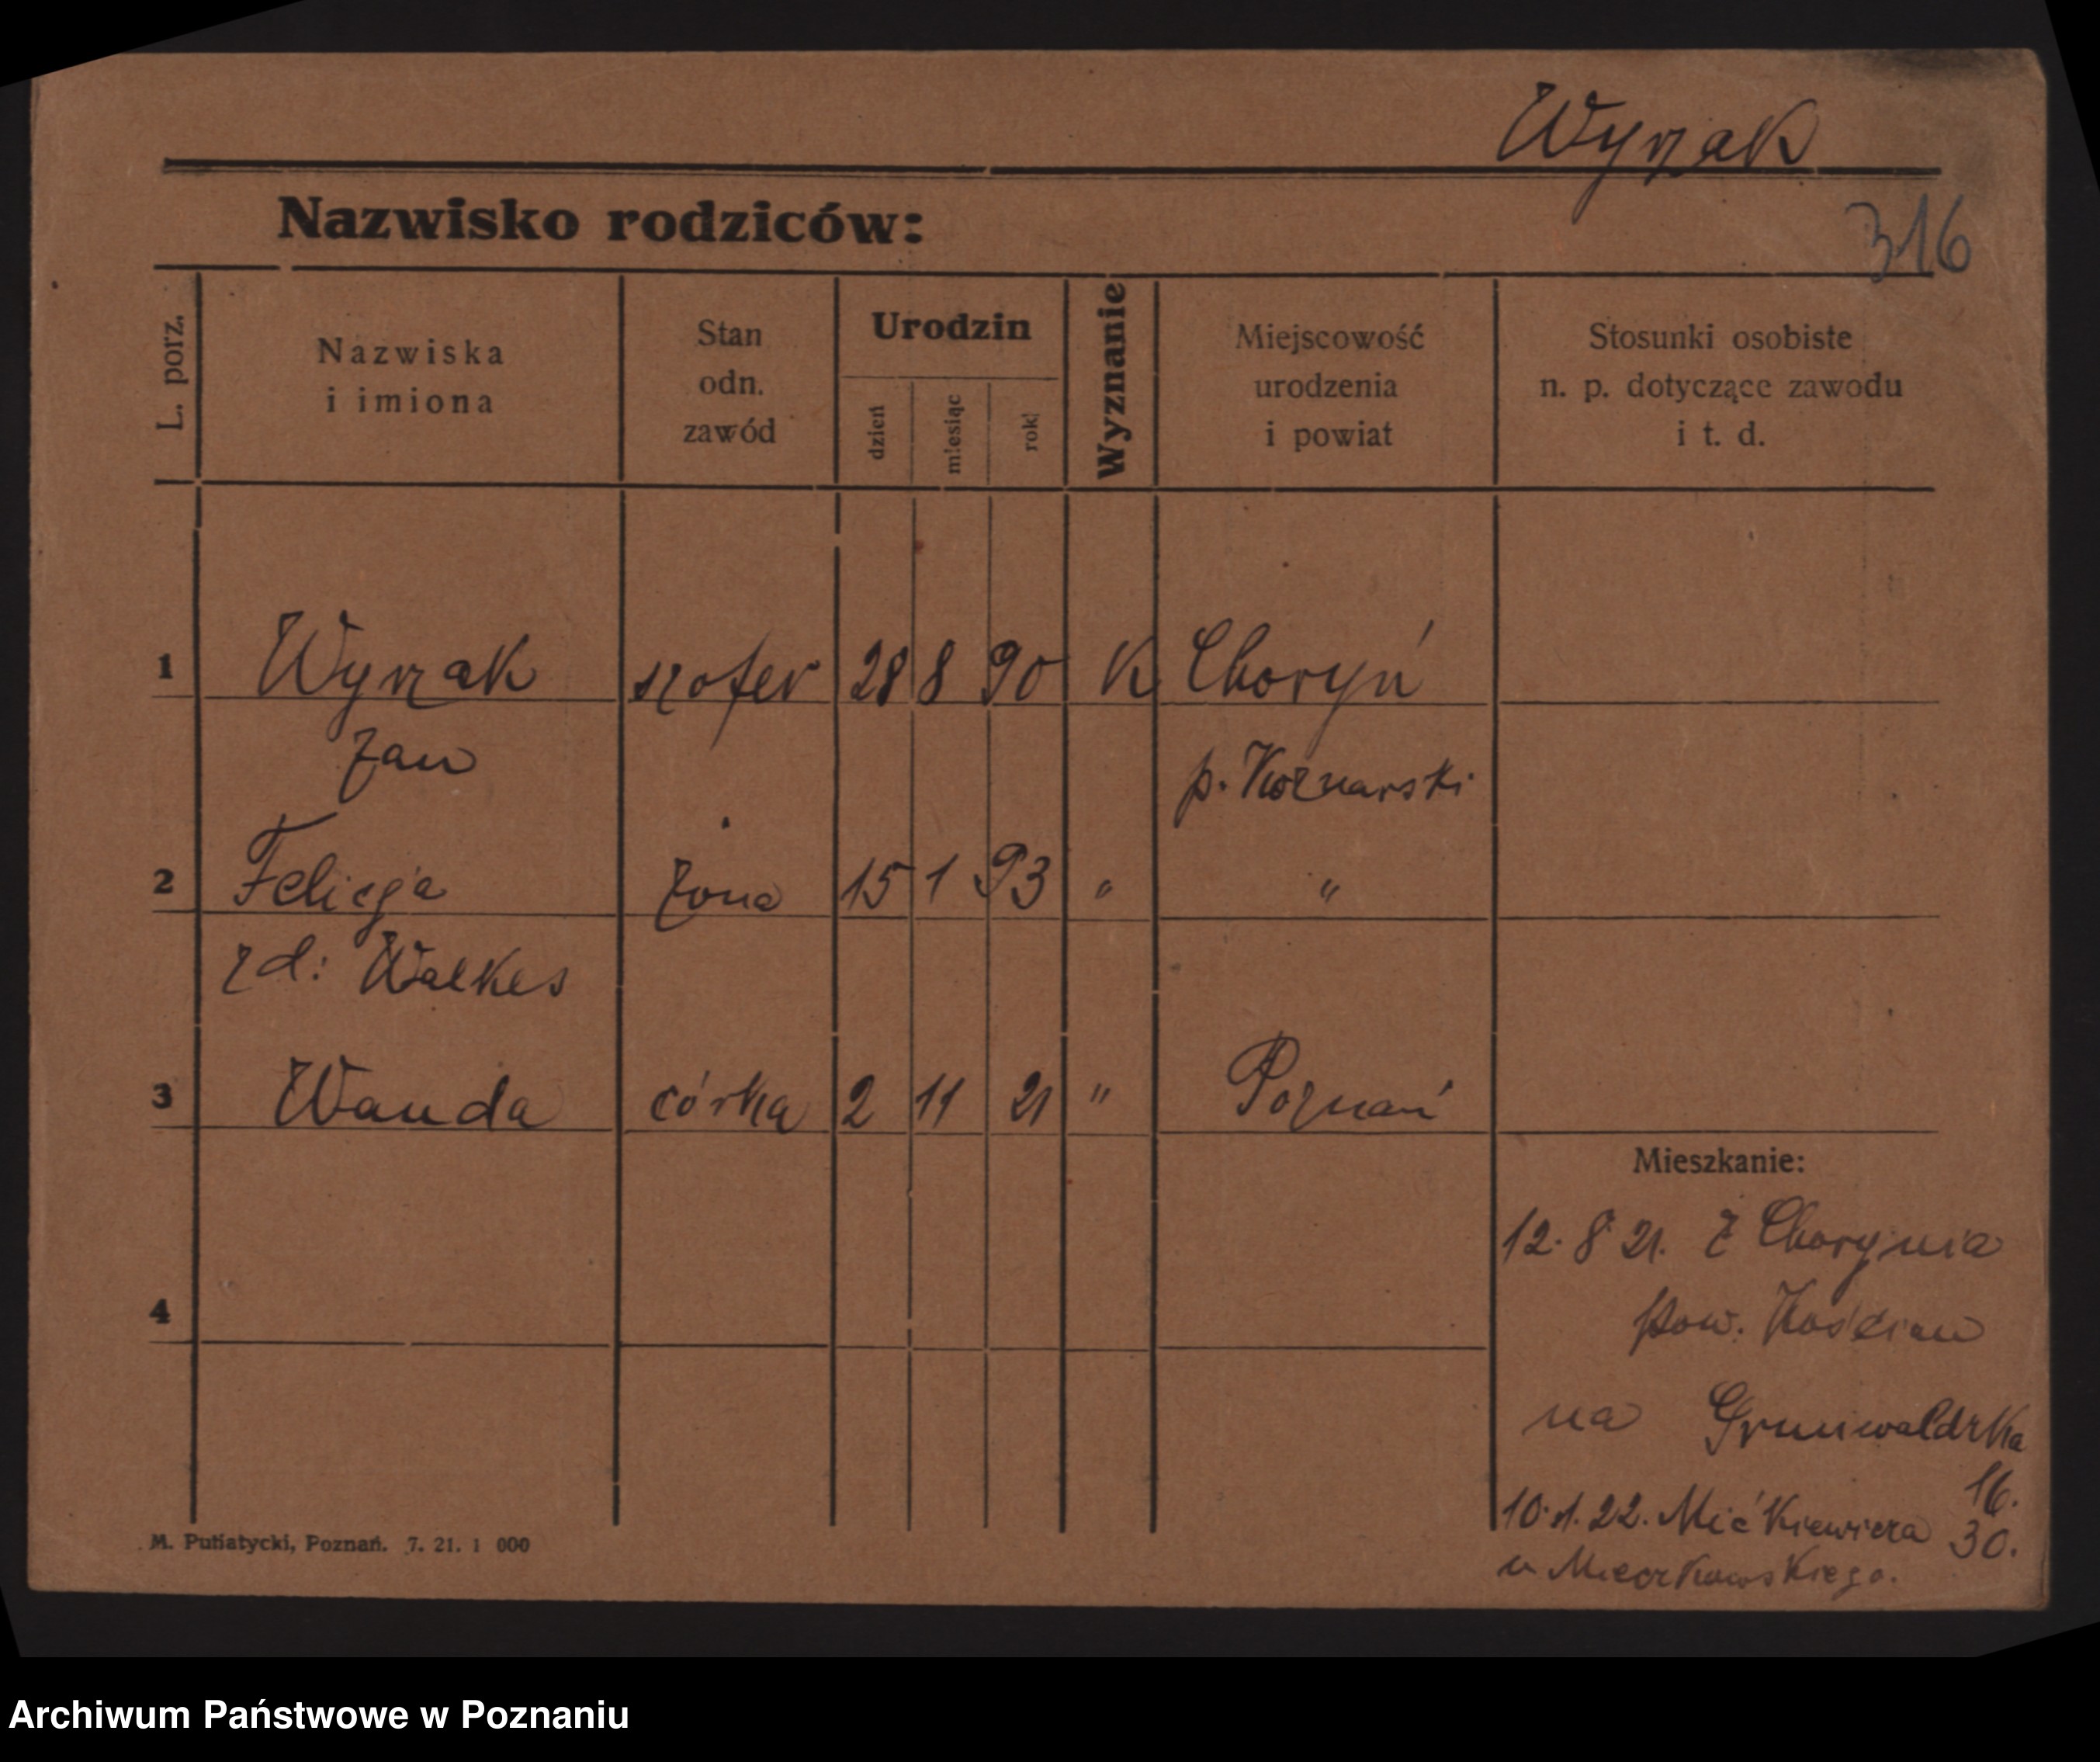 Wyrzak
316
Nazwisko rodziców:
L. porz.
Nazwiska
i imiona
Stan
odn.
zawód
Urodzin
dzień
miesiąc
rok
Wyznanie
Miejscowość
urodzenia
i powiat
Stosunki osobiste
n. p. dotyczące zawodu
i t. d.
1 Wyrzak szofer 28 8 90 K Choryń
Jan p.
2 Felicja żona 15 1 93 " "
zd: Walkes
3 Wanda córka 2 11 21 " Poznań
Mieszkanie:
12. 8 21. z Chorynia
pow. Kościan
4
na Grunwaldzka
16.
10. 1. 22. Mićkiewicza 30.
u Mieczkowskiego.
M. Putiatycki, Poznań. 7. 21. 1 000
Archiwum Państwowe w Poznaniu